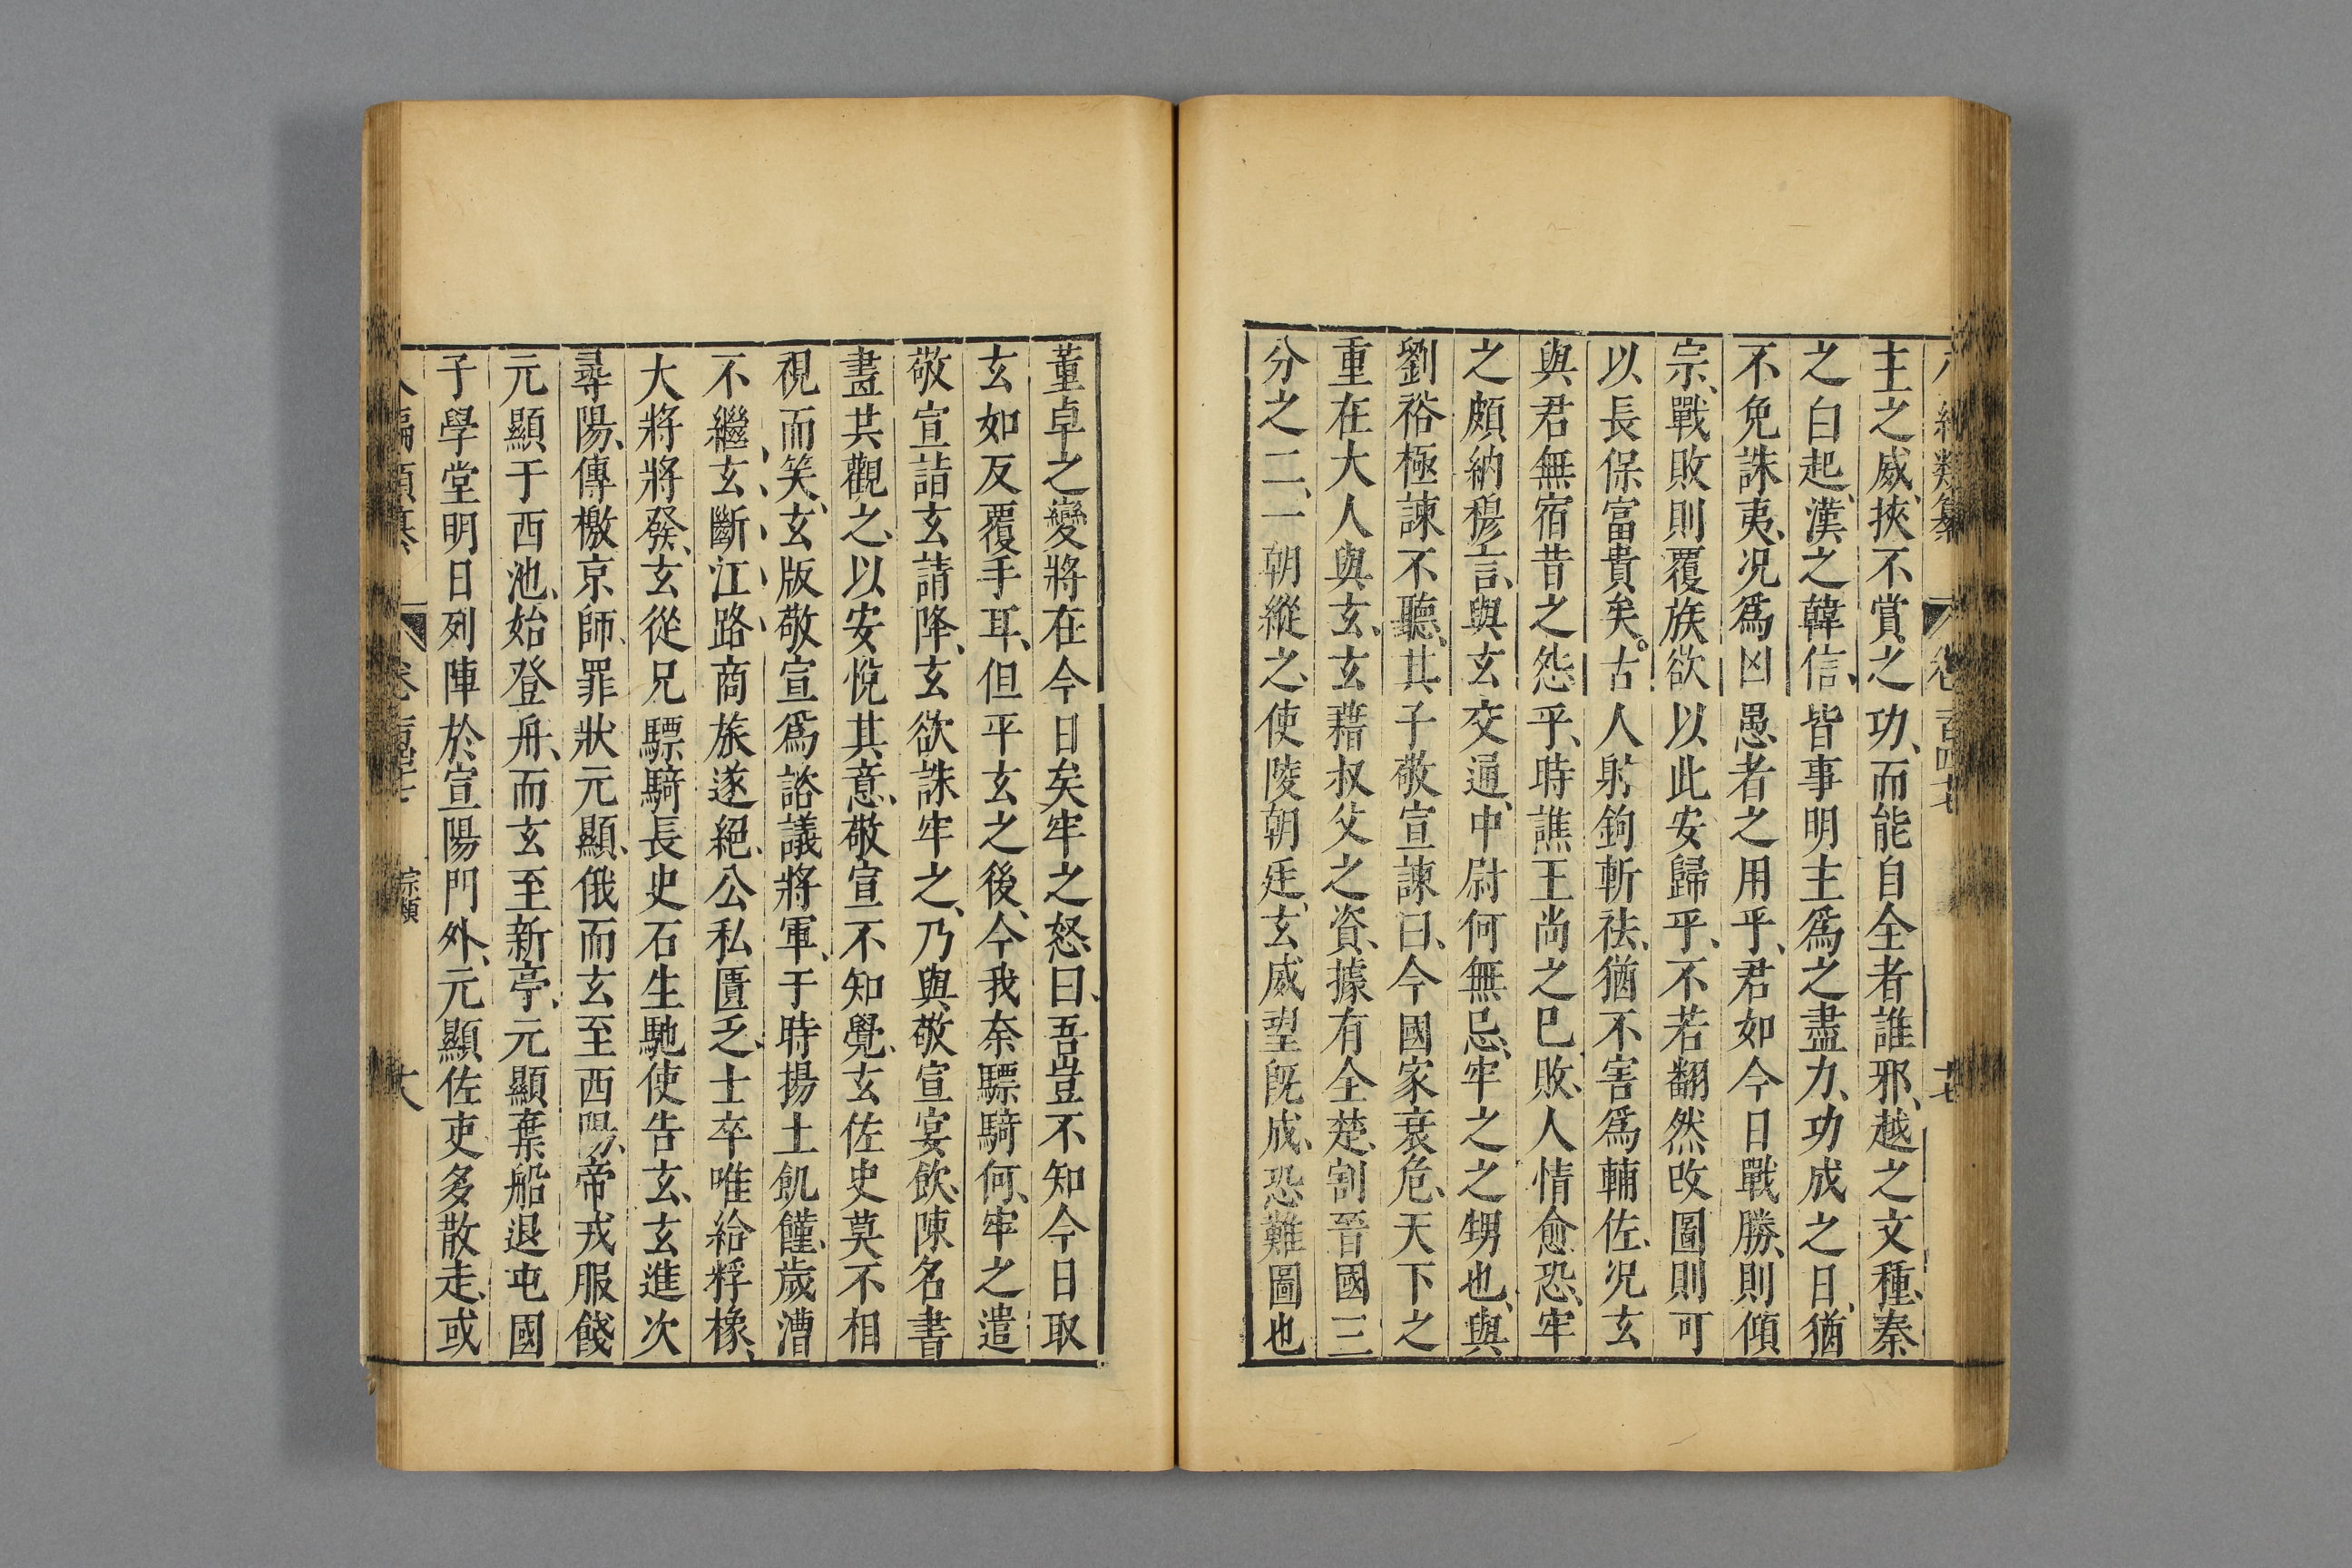 主之威、挾不賞之功、而能自全者誰邪、越之文種、秦
之白起、漢之韓信、皆事明主爲之盡力、功成之日、猶
不免誅夷、况爲凶愚者之用乎、君如今日戰勝、則傾
宗、戰敗則覆族欲以此安歸乎、不若翻然改圖則可
以長保富貴矣。古人射鉤斬祛、猶不害爲輔佐、况玄
與君無宿昔之怨乎、時譙王尚之巳敗、人情愈恐、牢
之頗納穆言、與玄交通、中尉何無忌、牢之之甥也、與
劉裕極諫不聽、其子敬宣諫曰、今國家衰危、天下之
重在大人與玄、玄藉叔父之資、據有全楚、割晉國三
分之二、一朝縱之、使陵朝廷、玄威望旣成、恐難圖也
董卓之變將在今日矣牢之怒、曰、吾豈不知今日取
玄如反覆手耳、但平玄之後、今我奈驃騎何、牢之遣
敬宣詣玄請降、玄欲誅牢之、乃與敬宣宴飲、陳名書
畫共觀之、以安悅其意、敬宣不知覺、玄佐史莫不相
視而笑、玄版敬宣爲諮議將軍、于時揚土飢饉、歲漕
不繼、玄斷江路商旅遂絕、公私匱乏、士卒唯給粰橡、
大將將發、玄從兄驃騎長史石生馳使告玄、玄進次
尋陽、傳檄京師、罪狀元顯、俄而玄至西陽、帝戎服餞
元顯于西池、始登舟、而玄至新亭、元顯棄船退屯國
子學堂明日列陣於宣陽門外、元顯佐吏多散走、或